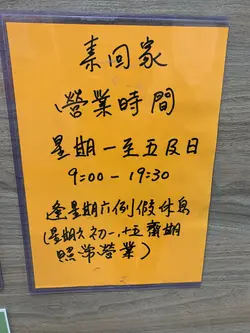 素回家
營業時間
星期一至五及日
9:00-19:30
逢星期六例假休息
(星期六初一、十五齋期
照常營業)